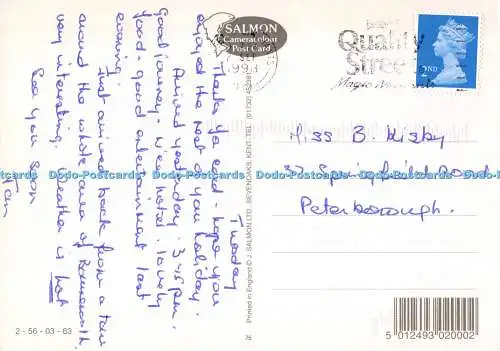 Tuesday
Thank you card - hope you
enjoyed the rest of you holiday.
Arrived yesterday 3.45pm.
Good journey. Nice hotel. lovely
food - good entertainment last
evening.
Just arrived back from a tour
around the whole area of Bournemouth
very interesting. Weather is hot
See you soon
SALMON
Cameracolour
Post Card
Quality
Street
2ND
Miss B. Kisby
Springfield Road
Peterborough.
Printed in England © J. SALMON LTD., SEVENOAKS, KENT. TEL.
Dodo-Postcards Dodo-Postcards Dodo-Postcards Dodo-Postcards Dodo-Postcards
2 - 56 - 03 - 63
5 012493 020002